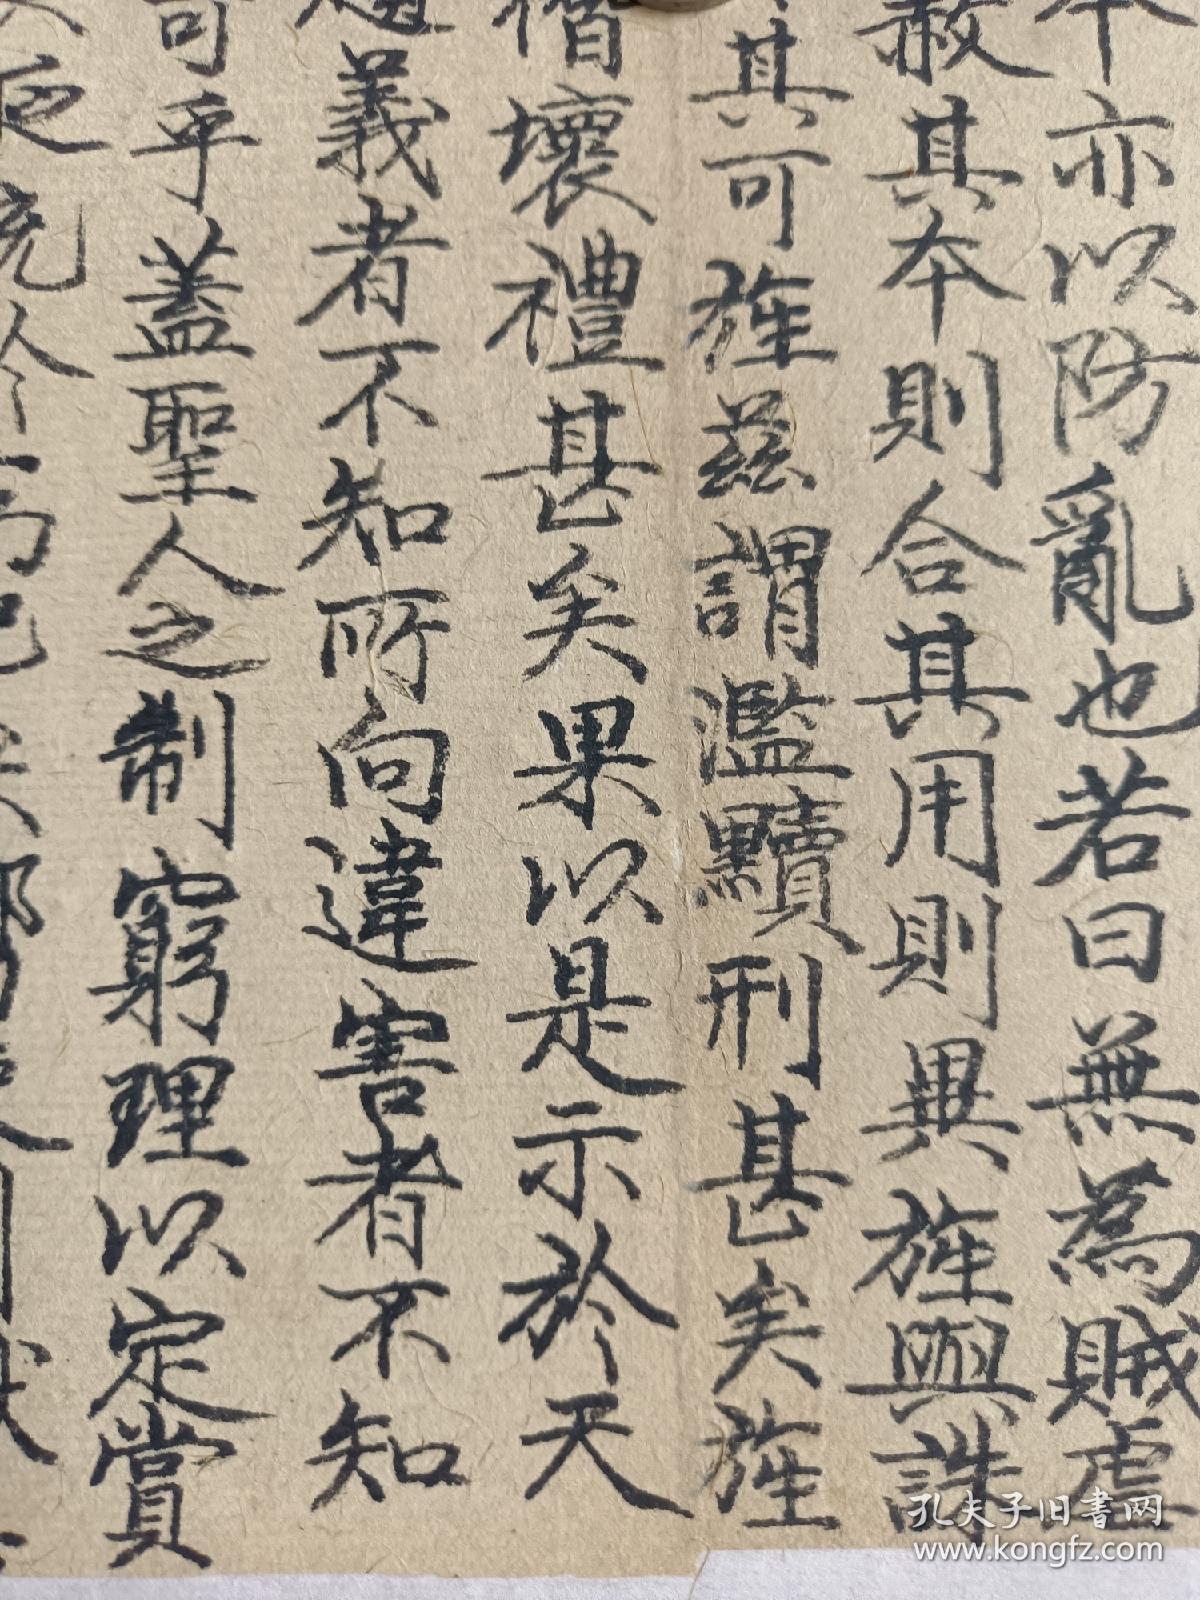 本亦以防亂也若曰無為賊虐
赦其本則合其用則異旌與誅
其可旌茲謂濫黷刑甚矣旌
僭壞禮甚矣果以是示於天
趨義者不知所向違害者不知
可乎蓋聖人之制窮理以定賞
孔夫子旧书网
www.kongfz.com